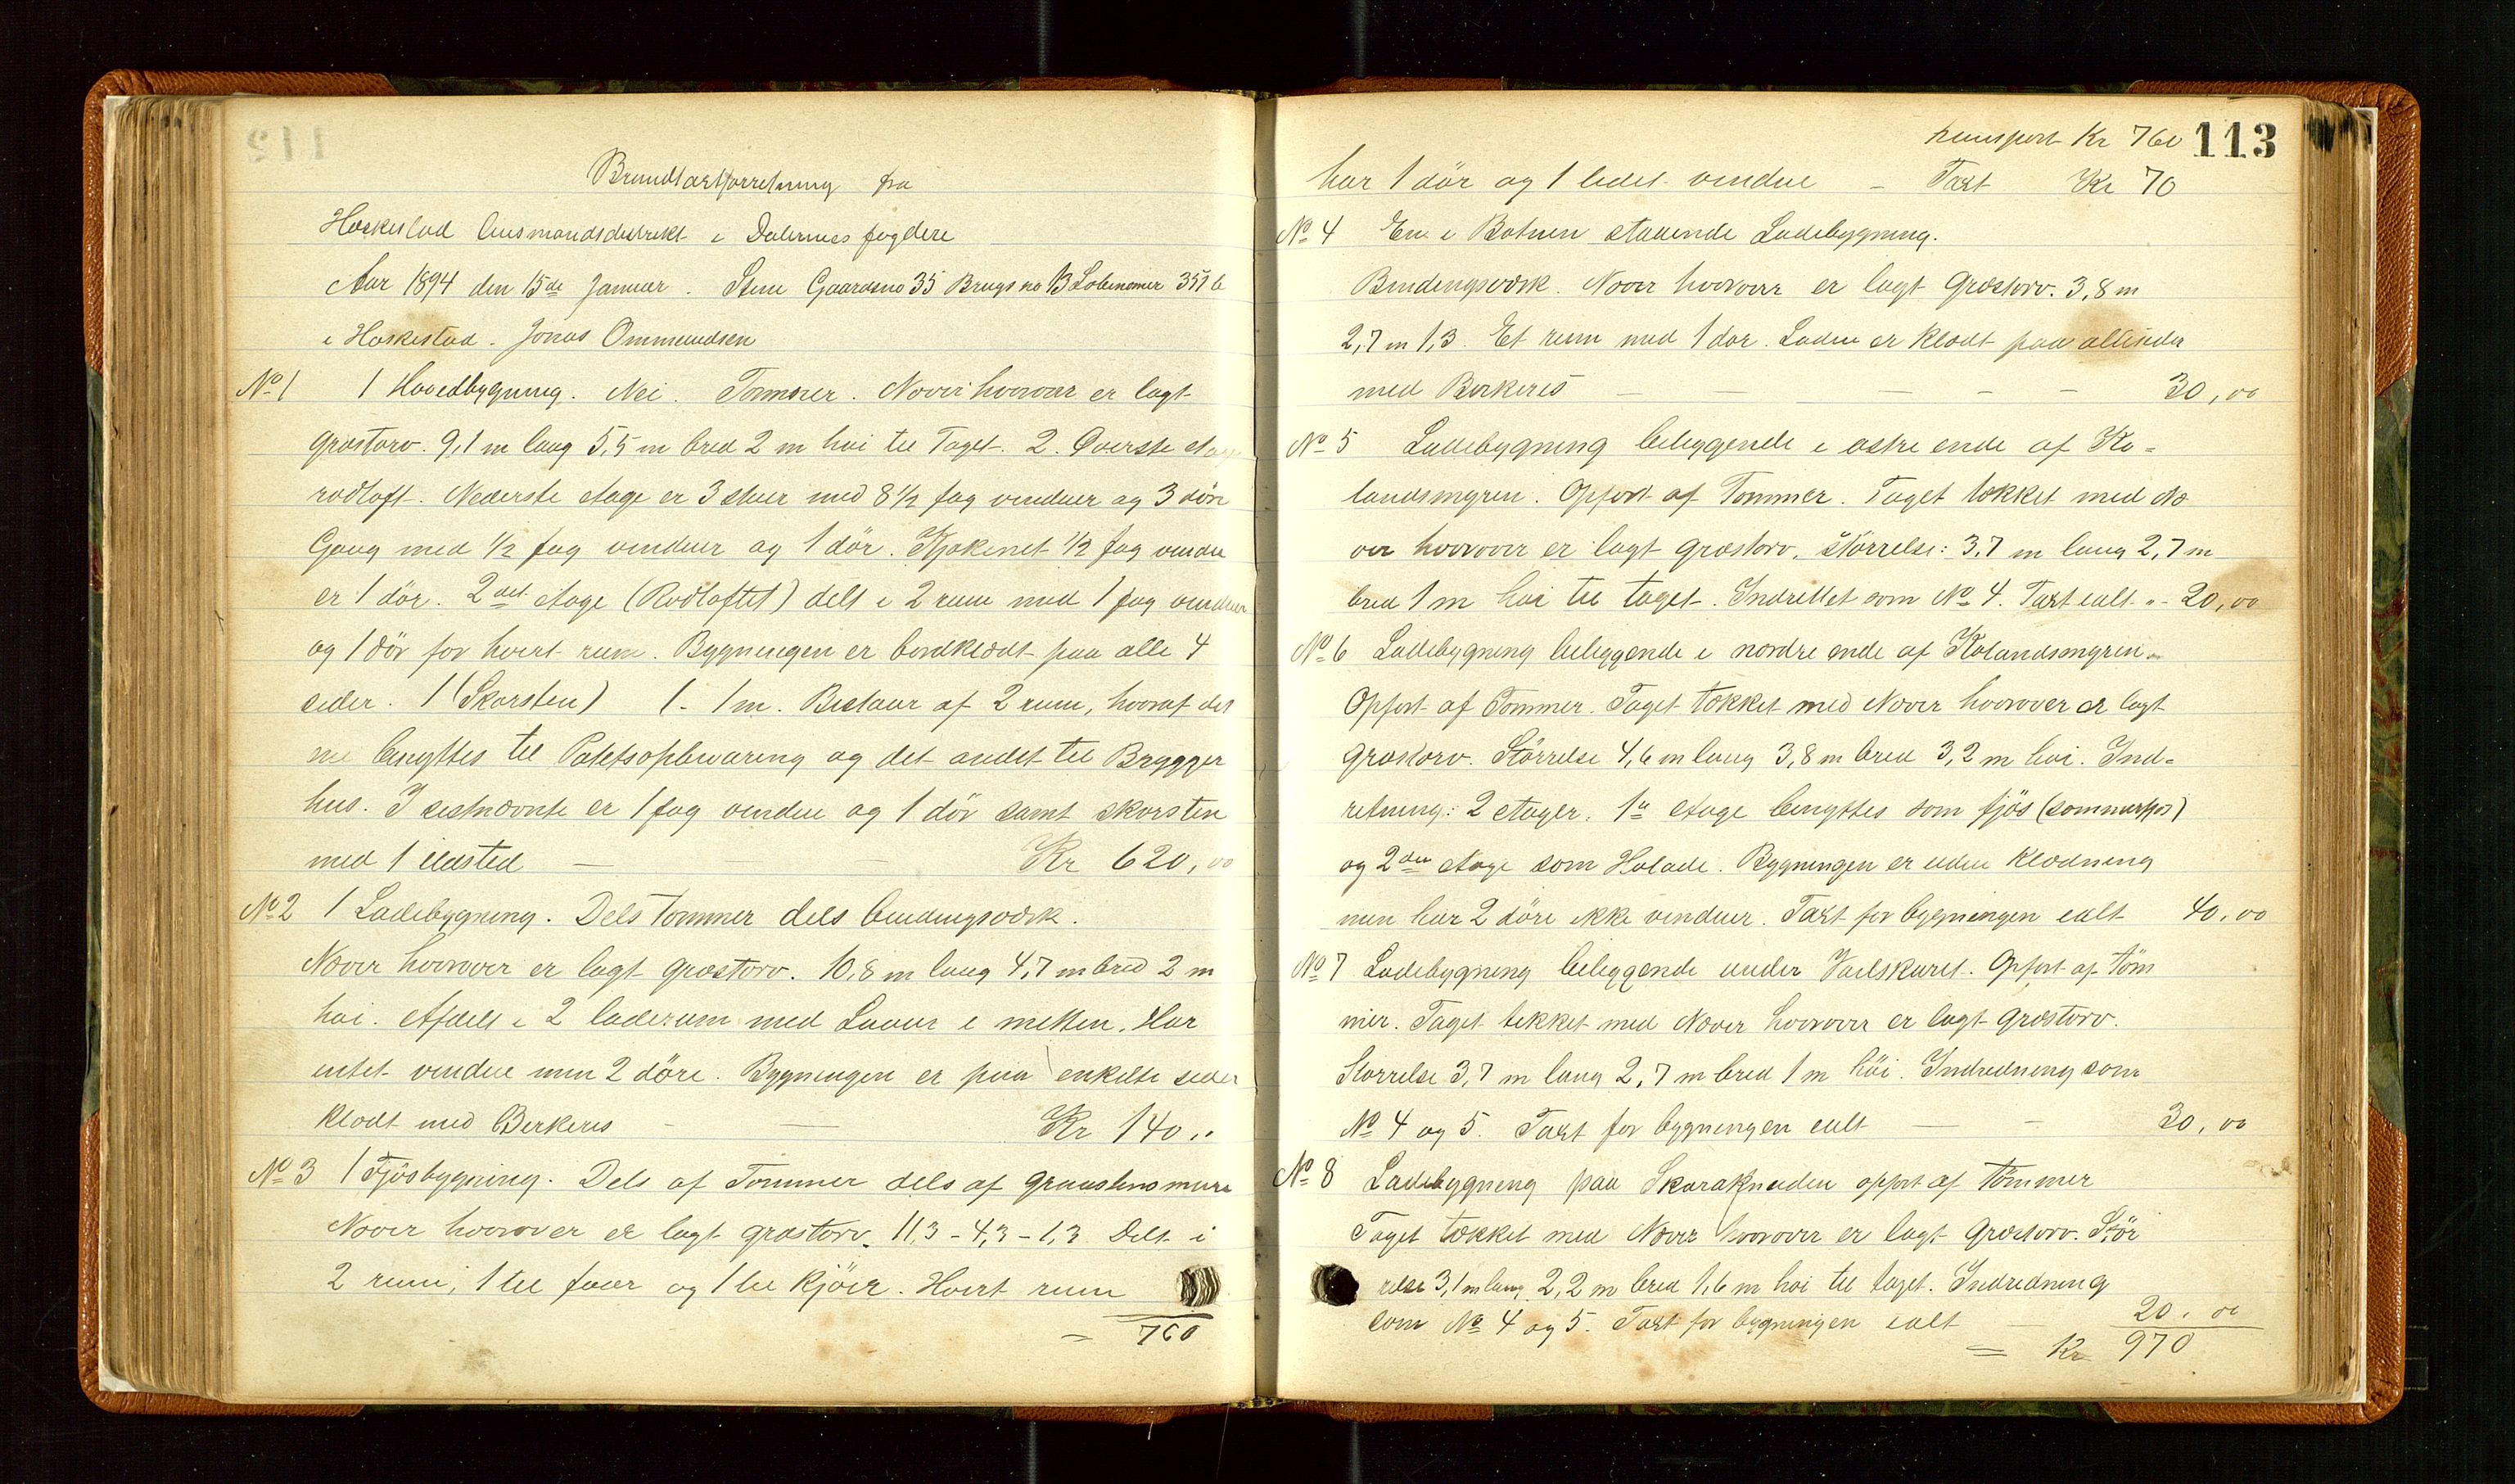 Brandtaxtforretning fra
Heskestad lensmandsdistrikt i Dalernes fogderi
Aar 1894 den 15de Januar. Stene Gaardsno 35 Brugsno 13 Løbenomer 351 b
i Heskestad. Jonas Ommundsen
No 1 1 Hovedbygning. Nei. Tømmer. Næver hvorover er lagt
græstorv. 9,1 m lang 5,5 m bred 2 m høi til Taget. 2. Øverste etage
rødloft. Nederste etage er 3 stuer med 8 1/2 fag vinduer og 3 döre
Gang med 1/2 fag vinduer og 1 dör. Kjøkenet 1/2 fag vindu
er 1 dör. 2det etage (Rødloftet) delt i 2 rum med 1 fag vinduer
og 1 dör for hvert rum. Bygningen er bordklædt paa alle 4
sider. 1 (Skorsten) 1 - 1 m. Bestaar af 2 rum, hvoraf det
ene benyttes til Potetsopbevaring og det andet til Brygger
hus. I sistnævnte er 1 fag vindue og 1 dör samt skorsten
med 1 ildsted — — Kr 620,00
No 2 1 Ladebygning. Dels Tømmer dels bindingsværk.
Næver hvorover er lagt græstorv. 10,8 m lang 4,7 m bred 2 m
høi. Afdelt i 2 laderum med Laave i midten. Har
intet vindue men 2 döre. Bygningen er paa enkelte sider
klædt med Berkeris - — Kr 140 "
No 3 1 Fjösbygning. Dels af Tømmer dels af graastensmure
Næver hvorover er lagt græstorv. 11,3 - 4,3 - 1,3 Delt i
2 rum, 1 til faar og 1 til kjöer. Hvert rum
= 760
113
transport Kr 760
har 1 dör og 1 lidet vindue - Taxt Kr 70
No 4 En i Botnen staaende Ladebygning.
Bindingsværk. Næver hvorover er lagt Græstorv. 3,8 m
2,7 m 1,3. Et rum med 1 dør. Laden er klædt paa alle sider
med Berkeris — — — - - 30,00
No 5 Ladebygning beliggende i østre ende af Ko=
landsmyren. Opført af Tømmer. Taget tækket med Næ
ver hvorover er lagt græstorv. Störrelse: 3,7 m lang 2,7 m
bred 1 m høi til taget. Indrettet som No 4. Taxt ialt " - 20,00
No 6 Ladebygning beliggende i nordre ende af Kolandsmyren.
Opført af Tømmer. Taget tækket med Næver hvorover er lagt
græstorv. Störrelse 4,6 m lang 3,8 m bred 3,2 m høi. Ind=
retning: 2 etager. 1ste etage benyttes som fjös (sommerfjøs)
og 2den etage som Hølade. Bygningen er uden klædning
men har 2 döre ikke vinduer. Taxt for bygningen ialt 40,00
No 7 Ladebygning beliggende under Vardskaret. Opført af töm
mer. Taget tekket med Næver hvorover er lagt græstorv.
Størrelse 3,7 m lang 2,7 m bred 1 m höi. Indredning som
No 4 og 5. Taxt for bygningen ialt — - 30,00
No 8 Ladebygning paa opført af Tömmer
Taget tækket med Næver hvorover er lagt Græstorv. Stör
relse 3,1 m lang 2,2 m bred 1,6 m høi til taget. Indredning
som No 4 og 5. Taxt for bygningen ialt — 20,00
= Kr 970